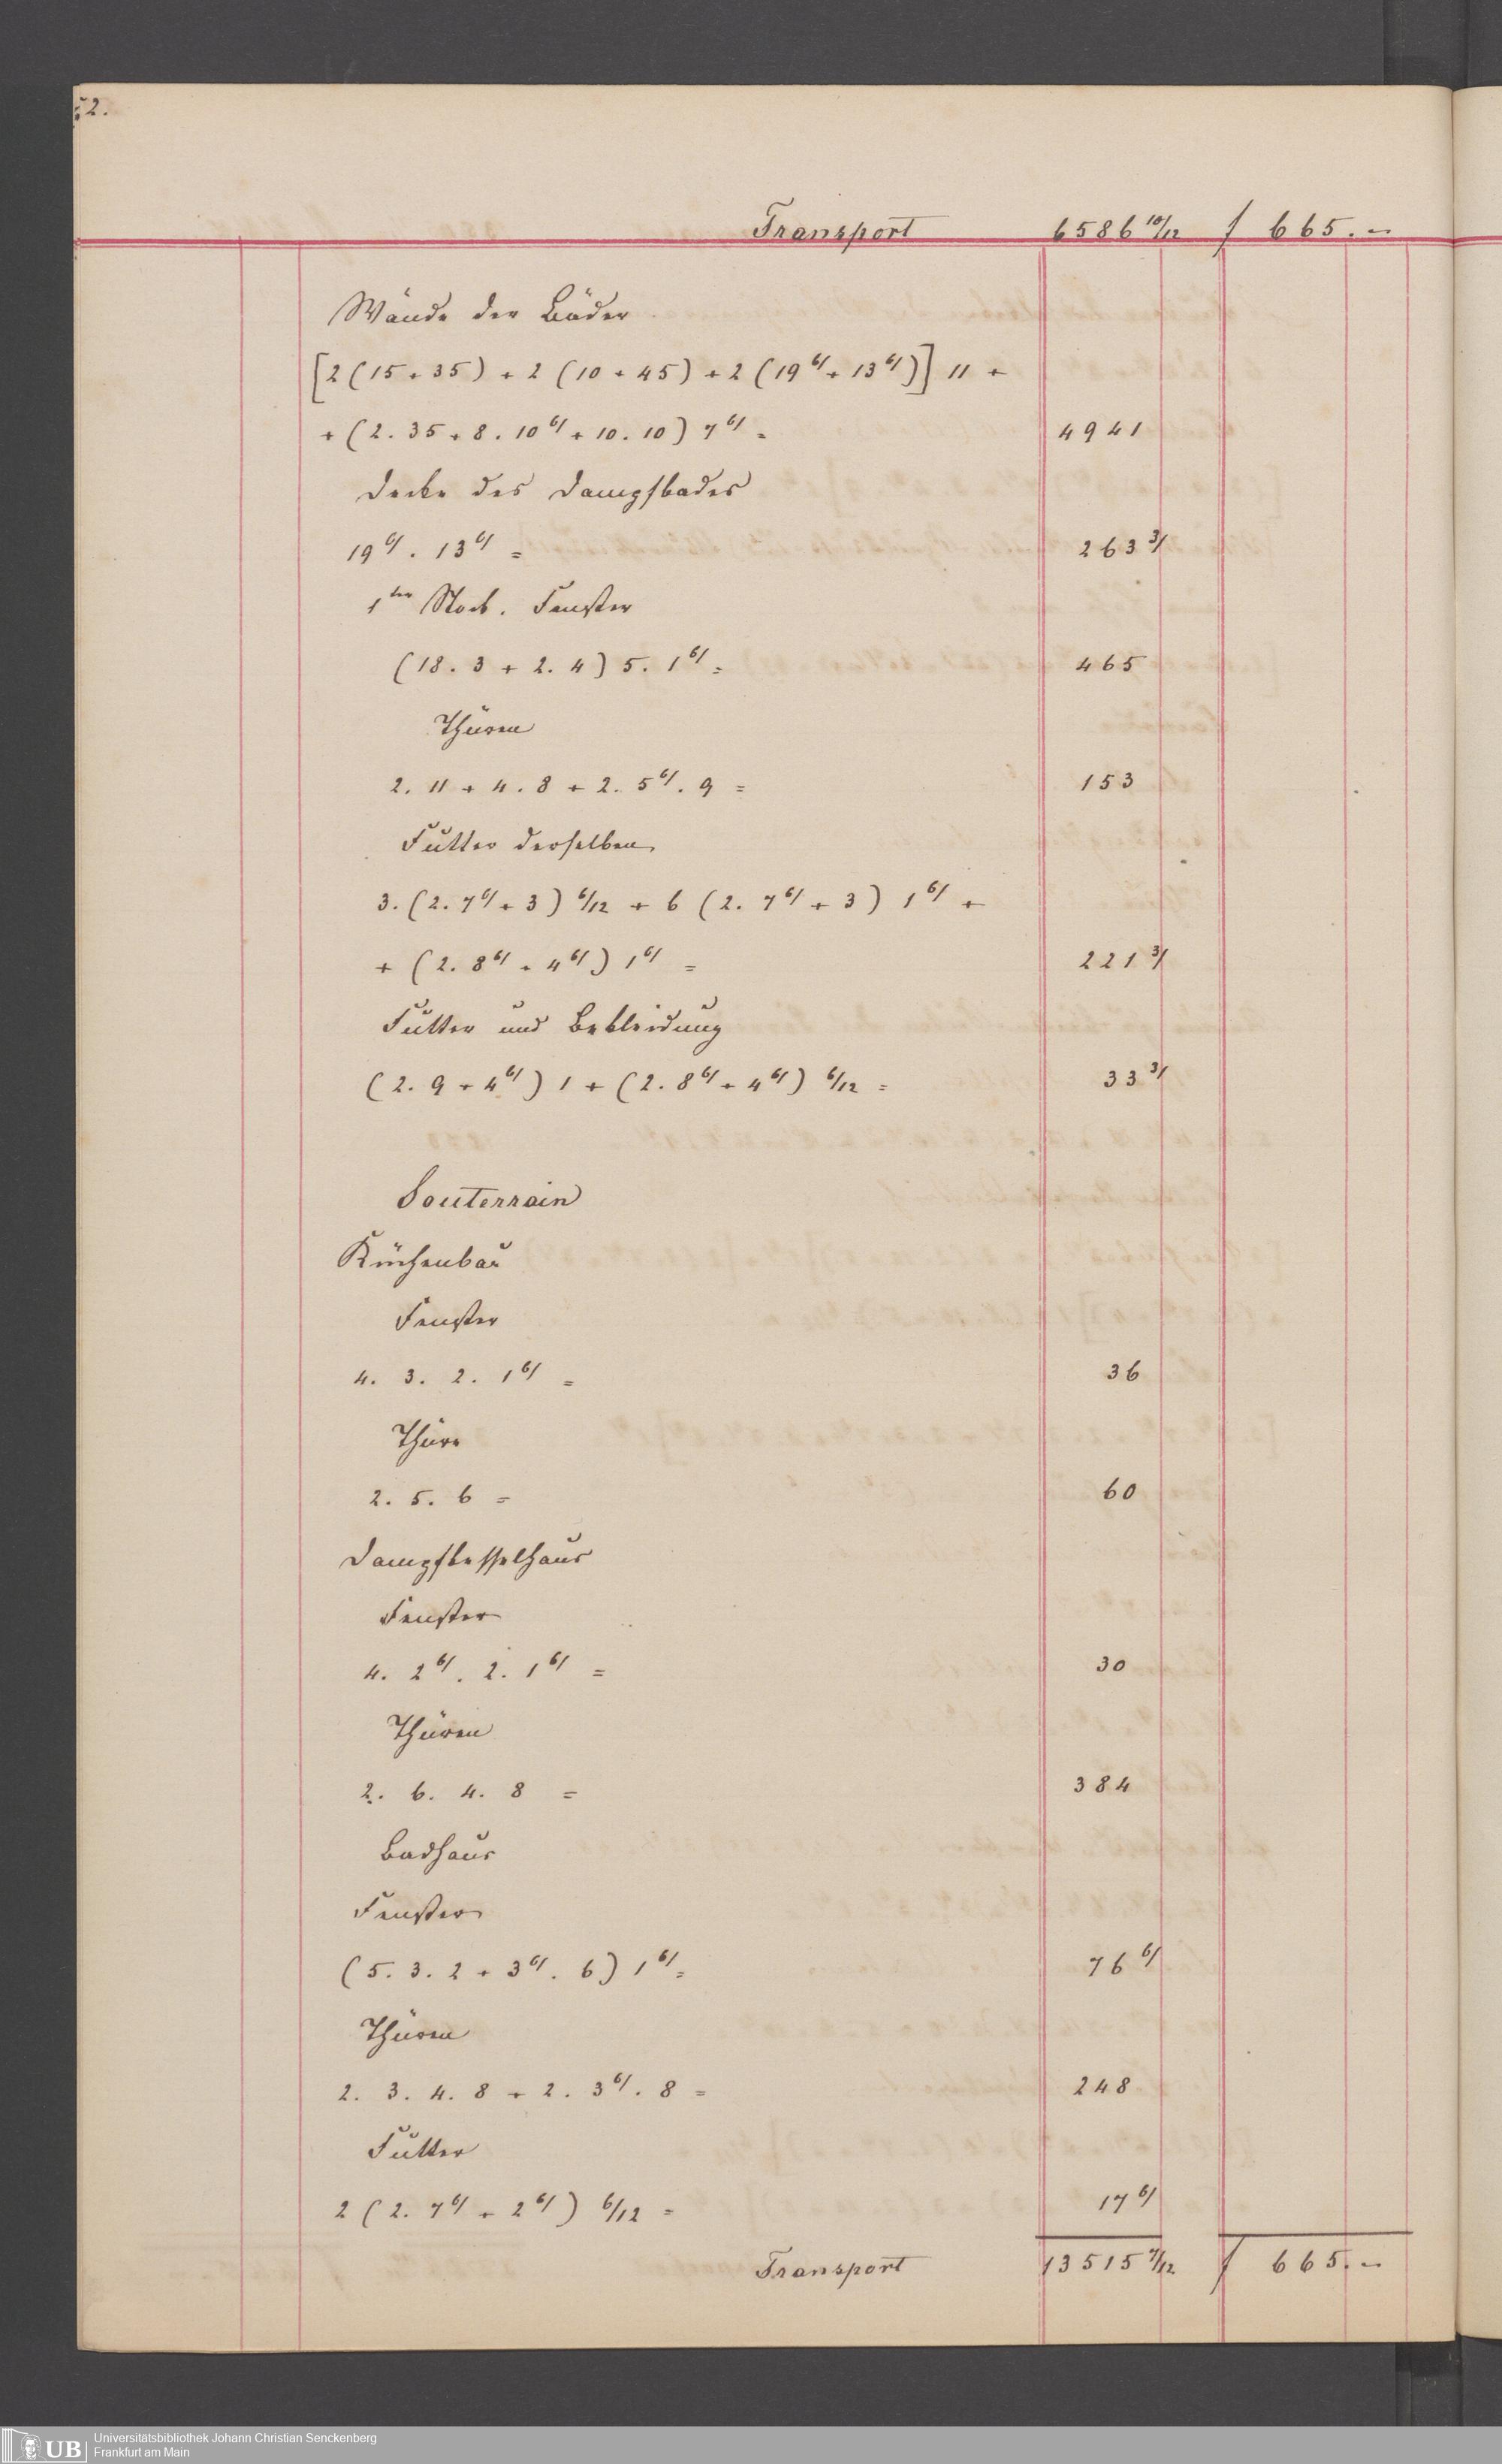 52.
Transport 6586 10/12 f 665.–
Wände der Bäder
[2 (15 + 35) + 2 (10 + 45) + 2 (19 6/ + 13 6/)] 11 +
+ (2. 35 + 8. 10 6/ + 10. 10) 7 6/ = 4941
Decke des Dampfbades
19 6/. 13 6/ = 263 3/
1ter Stock. Fenster
(18. 3 + 2. 4) 5. 1 6/ = 465
Thüren
2. 11 + 4. 8 + 2. 5 6/. 9 = 153
Futter derselben
3. (2. 7 6/ + 3) 6/12 + 6 (2. 7 6/ + 3) 1 6/ +
+ (2. 8 6/ + 4 6/) 1 6/ = 221 3/
Futter und Bekleidung
(2. 9 + 4 6/) 1 + (2. 8 6/ + 4 6/) 6/12 = 33 3/
Souterrain
Küchenbau
Fenster
4. 3. 2. 1 6/ = 36
Thüre
2. 5. 6 = 60
Dampfkesselhaus
Fenster
4. 2 6/. 2. 1 6/ = 30
Thüren
2. 6. 4. 8 = 384
Badhaus
Fenster
(5. 3. 2 + 3 6/. 6) 1 6/ = 76 6/
Thüren
2. 3. 4. 8 + 2. 3 6/. 8 = 248
Futter
2 (2. 7 6/ + 2 6/) 6/12 = 17 6/
Transport 13515 7/12 f 665.–
UB
Universitätsbibliothek Johann Christian Senckenberg
Frankfurt am Main